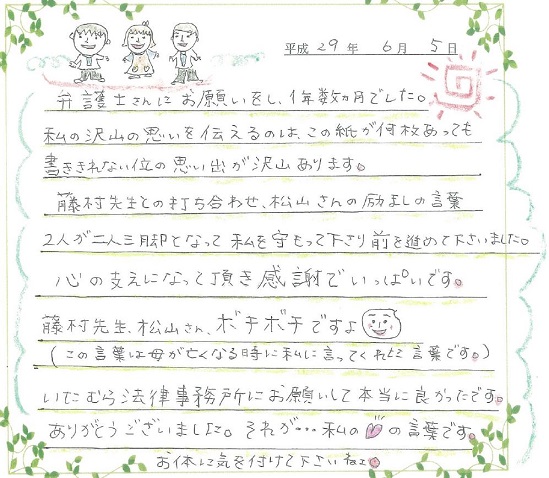 平成 29 年 6 月 5 日
弁護士さんに お願いをし、1年数ヵ月でした。
私の沢山の思いを伝えるのは、この紙が何枚あっても
書ききれない位の思い出が沢山あります。
藤村先生との打ち合わせ、松山さんの励ましの言葉
2人が二人三脚となって 私を守もって下さり前を進めて下さいました。
心の支えになって頂き感謝でいっぱいです。
藤村先生、松山さん、ボチボチですよ
(この言葉は母が亡くなる時に私に言ってくれた言葉です。)
いたむら法律事務所にお願いして本当に良かったです。
ありがとうございました。それが…私の の言葉です。
お体に気を付けて下さいねェ